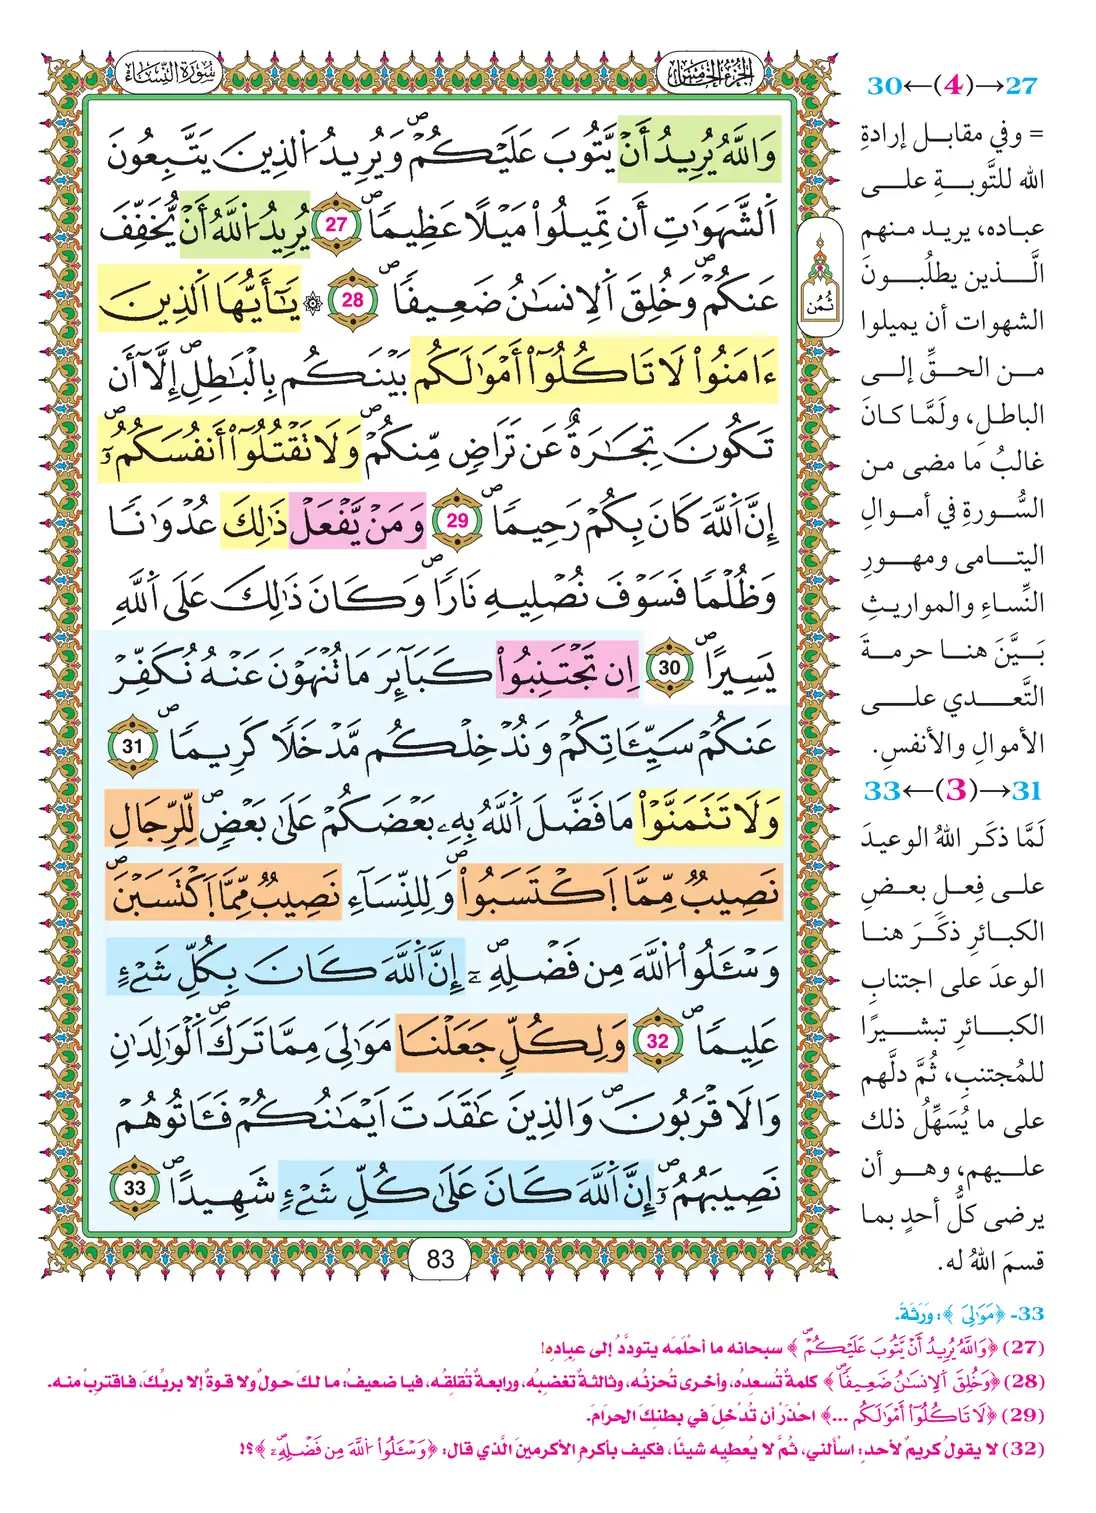 الجزء الخامس
سورة النساء
وَاللَّهُ يُرِيدُ أَنْ يَّتُوبَ عَلَيْكُمْ وَيُرِيدُ الذِينَ يَتَّبِعُونَ
اَلشَّهَوَٰتِ أَن تَمِيلُواْ مَيْلًا عَظِيمًا 27 يُرِيدُ اللَّهُ أَنْ يُّخَفِّفَ
عَنكُمْ وَخُلِقَ اَلِانسَٰنُ ضَعِيفًا 28 ۞ يَٰٓأَيُّهَا اَلذِينَ
ءَامَنُواْ لَا تَاكُلُوٓاْ أَمْوَٰلَكُم بَيْنَكُم بِالْبَٰطِلِ إِلَّآ أَن
تَكُونَ تِجَٰرَةٌ عَن تَرَاضٍ مِّنكُمْ وَلَا تَقْتُلُوٓاْ أَنفُسَكُمُۥٓ
إِنَّ اَللَّهَ كَانَ بِكُمْ رَحِيمًا 29 وَمَنْ يَّفْعَلْ ذَٰلِكَ عُدْوَٰنًا
وَظُلْمًا فَسَوْفَ نُصْلِيهِ نَارًا وَكَانَ ذَٰلِكَ عَلَى اَللَّهِ
يَسِيرًا 30 إِن تَجْتَنِبُواْ كَبَآئِرَ مَا تُنْهَوْنَ عَنْهُ نُكَفِّرْ
عَنكُمْ سَيِّـَٔاتِكُمْ وَنُدْخِلْكُم مَّدْخَلًا كَرِيمًا 31
وَلَا تَتَمَنَّوْاْ مَا فَضَّلَ اَللَّهُ بِهِۦ بَعْضَكُمْ عَلَىٰ بَعْضٍ لِّلرِّجَالِ
نَصِيبٌ مِّمَّا اَكْتَسَبُواْ وَلِلنِّسَآءِ نَصِيبٌ مِّمَّا اَكْتَسَبْنَ
وَسْـَٔلُواْ اللَّهَ مِن فَضْلِهِۦٓ إِنَّ اَللَّهَ كَانَ بِكُلِّ شَےْءٍ
عَلِيمًا 32 وَلِكُلٍّ جَعَلْنَا مَوَٰلِيَ مِمَّا تَرَكَ اَلْوَٰلِدَٰنِ
وَالَاقْرَبُونَ وَالذِينَ عَٰقَدَتَ اَيْمَٰنُكُمْ فَـَٔاتُوهُمْ
نَصِيبَهُمُۥٓ إِنَّ اَللَّهَ كَانَ عَلَىٰ كُلِّ شَےْءٍ شَهِيدًا 33
ثُمُن
83
27→(4)←30
= وفي مقابل إرادةِ
الله للتَّوبةِ على
عباده، يريد منهم
الَّذين يطلُبونَ
الشهوات أن يميلوا
من الحقِّ إلى
الباطلِ، ولَمَّا كانَ
غالبُ ما مضى من
السُّورةِ في أموالِ
اليتامى ومهورِ
النِّساءِ والمواريثِ
بَيَّنَ هنا حرمةَ
التَّعدي على
الأموالِ والأنفسِ.
31→(3)←33
لَمَّا ذكَر اللهُ الوعيدَ
على فِعلِ بعضِ
الكبائرِ ذكَرَ هنا
الوعدَ على اجتنابِ
الكبائرِ تبشيرًا
للمُجتنبِ، ثُمَّ دلَّهم
على ما يُسَهِّلُ ذلك
عليهم، وهو أن
يرضى كلُّ أحدٍ بما
قسمَ اللهُ له.
33- ﴿مَوَٰلِيَ﴾: ورَثَةً.
(27) ﴿وَاللَّهُ يُرِيدُ أَنْ يَّتُوبَ عَلَيْكُمْ﴾ سبحانه ما أحْلَمَه يتودَّدُ إلى عبادِه!
(28) ﴿وَخُلِقَ اَلِانسَٰنُ ضَعِيفًا﴾ كلمةٌ تُسعدُه، وأخرى تُحزنُه، وثالثةٌ تغضبُه، ورابعةٌ تُقلقُه، فيا ضعيف: ما لكَ حول ولا قوة إلا بربكَ، فاقتربْ منه.
(29) ﴿لَا تَاكُلُوٓاْ أَمْوَٰلَكُم ...﴾ احْذرْ أن تُدْخلَ في بطنكَ الحرامَ.
(32) لا يقولُ كريمٌ لأحدٍ: اسألني، ثُمَّ لا يُعطيه شيئًا، فكيف بأكرمِ الأكرمين الَّذي قال: ﴿وَسْـَٔلُواْ اللَّهَ مِن فَضْلِهِۦٓ﴾؟!